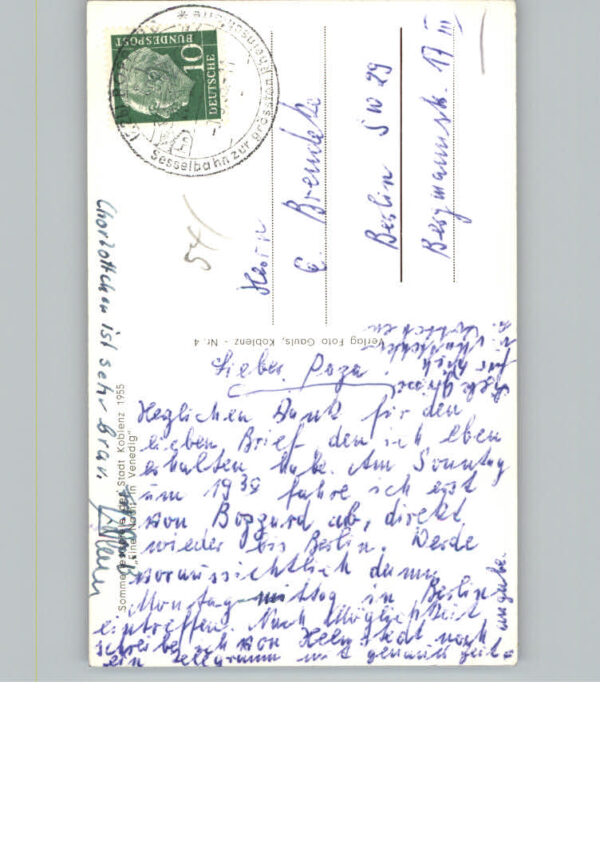 Lieber Papa!
Herzlichen Dank für den
lieben Brief den ich eben
erhalten habe. Am Sonntag
um 19³⁹ fahre ich erst
von Boppard ab, direkt
wieder bis Berlin. Werde
voraussichtlich dann
Montag mittag in Berlin
eintreffen. Nach Möglichkeit
schreibe ich von Helmstedt noch
ein Telegramm mit genauer Zeit=
angabe.
Herrn
E. Brendeke
Berlin SW 29
Bergmannstr. 17 III
Charlottchen ist sehr brav.
54/
Verlag Foto Gauls, Koblenz - Nr. 4
Sommerfestspiele der Stadt Koblenz 1955
„Eine Nacht in Venedig"
DEUTSCHE
BUNDESPOST
10
Sesselbahn zur grössten Rheinschleife